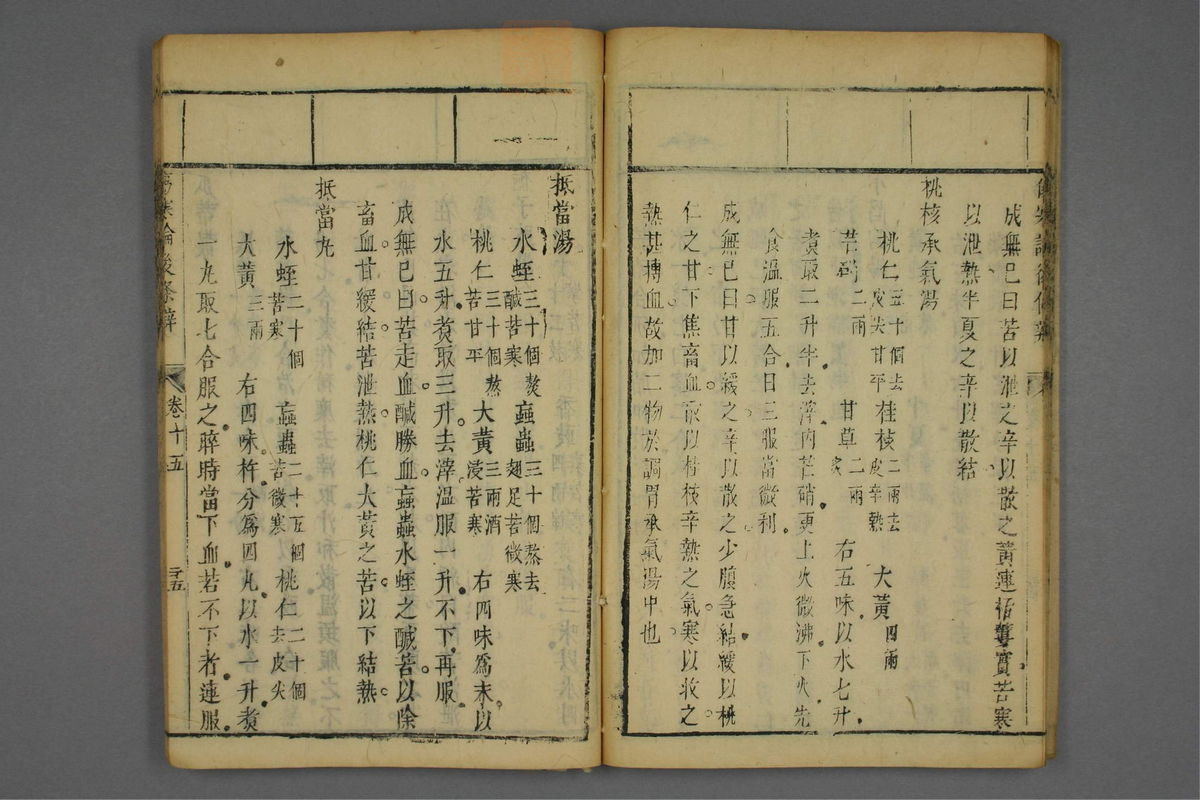 成無已曰苦以泄之辛以散之黃連栝蔞實苦寒
以泄熱半夏之辛以散結
桃核承氣湯
桃仁五十個去皮尖甘平 桂枝二兩去皮辛熱 大黃四兩
芒硝二兩 甘草二兩炙 右五味以水七升
煮取二升半去滓內芒硝更上火微沸下火先
食溫服五合日三服當微利
成無已曰甘以緩之辛以散之少腹急結緩以桃
仁之甘下焦畜血散以桂枝辛熱之氣寒以收之
熱甚搏血故加二物於調胃承氣湯中也
抵當湯
水蛭三十個熬鹹苦寒 蝱蟲三十個熬去翅足苦微寒
桃仁三十個熬苦甘平 大黃三兩酒浸苦寒 右四味爲末以
水五升煮取三升去滓溫服一升不下再服
成無已曰苦走血鹹勝血蝱蟲水蛭之鹹苦以除
畜血甘緩結苦泄熱桃仁大黃之苦以下結熱
抵當丸
水蛭二十個苦寒 蝱蟲二十五個苦微寒 桃仁二十個去皮尖
大黃三兩 右四味杵分爲四丸以水一升煮
一丸取七合服之晬時當下血若不下者連服
傷寒論後條辨
卷十五
二十五